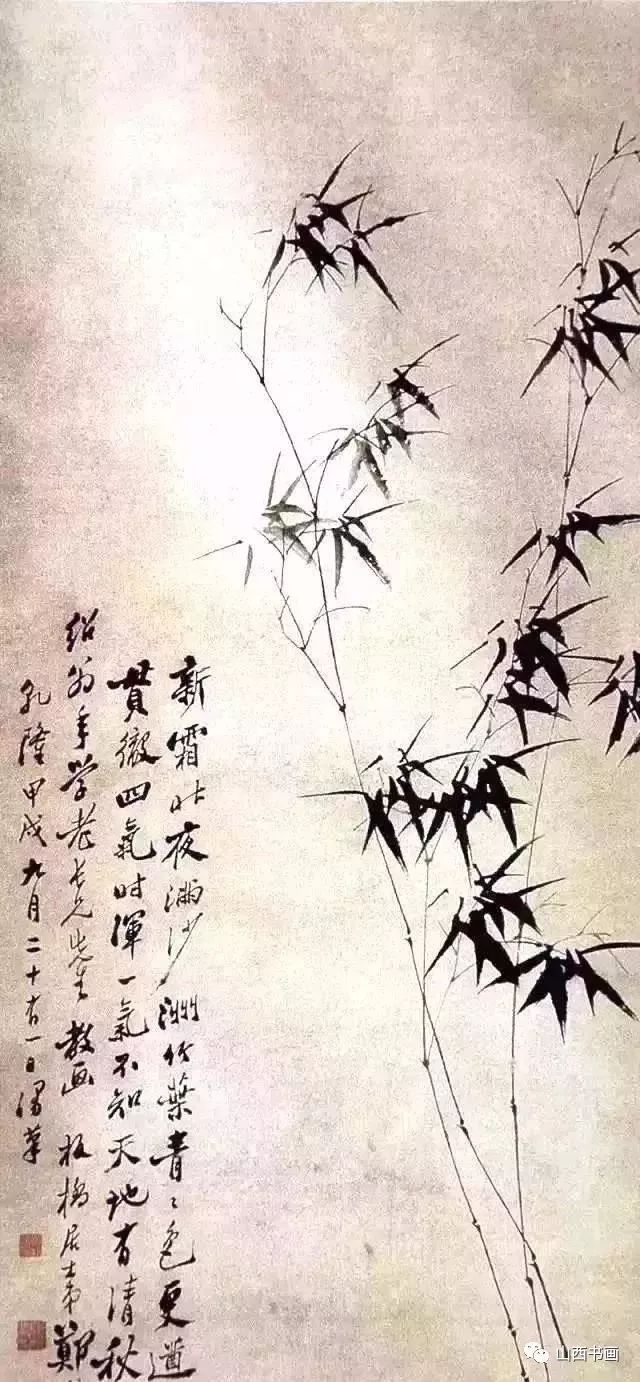 新霜昨夜滿沙洲竹葉青〻色更遒
貫徹四氣時渾一氣不知天地有清秋
紹翁年学老長兄先生 教画 板橋居士弟鄭
乾隆甲戌九月二十有一日
山西书画